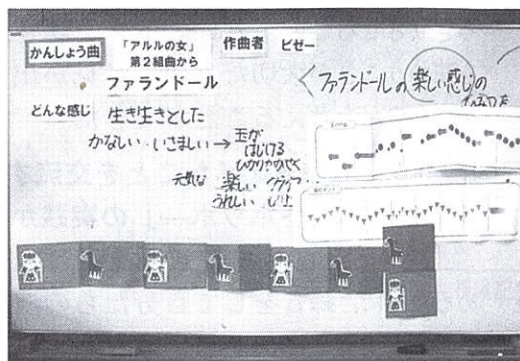 かんしょう曲
「アルルの女」
第2組曲から
作曲者 ビゼー
ファランドール
どんな感じ 生き生きとした
かなしい いさましい→玉が
はじける
元気な 楽しい
うれしい
ファランドールの楽しい感じの